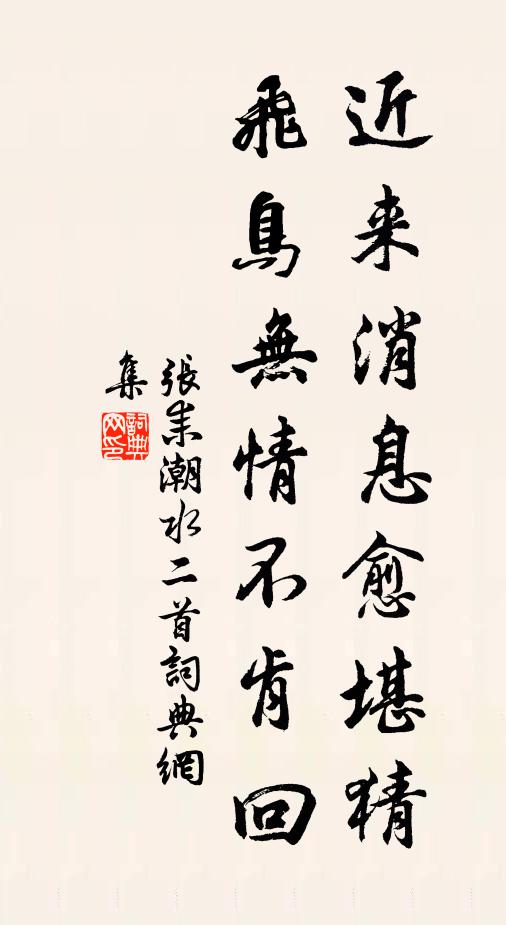 近来消息愈堪猜
飛鳥無情不肯回
張耒潮水二首詞典網
集
詞典
网印